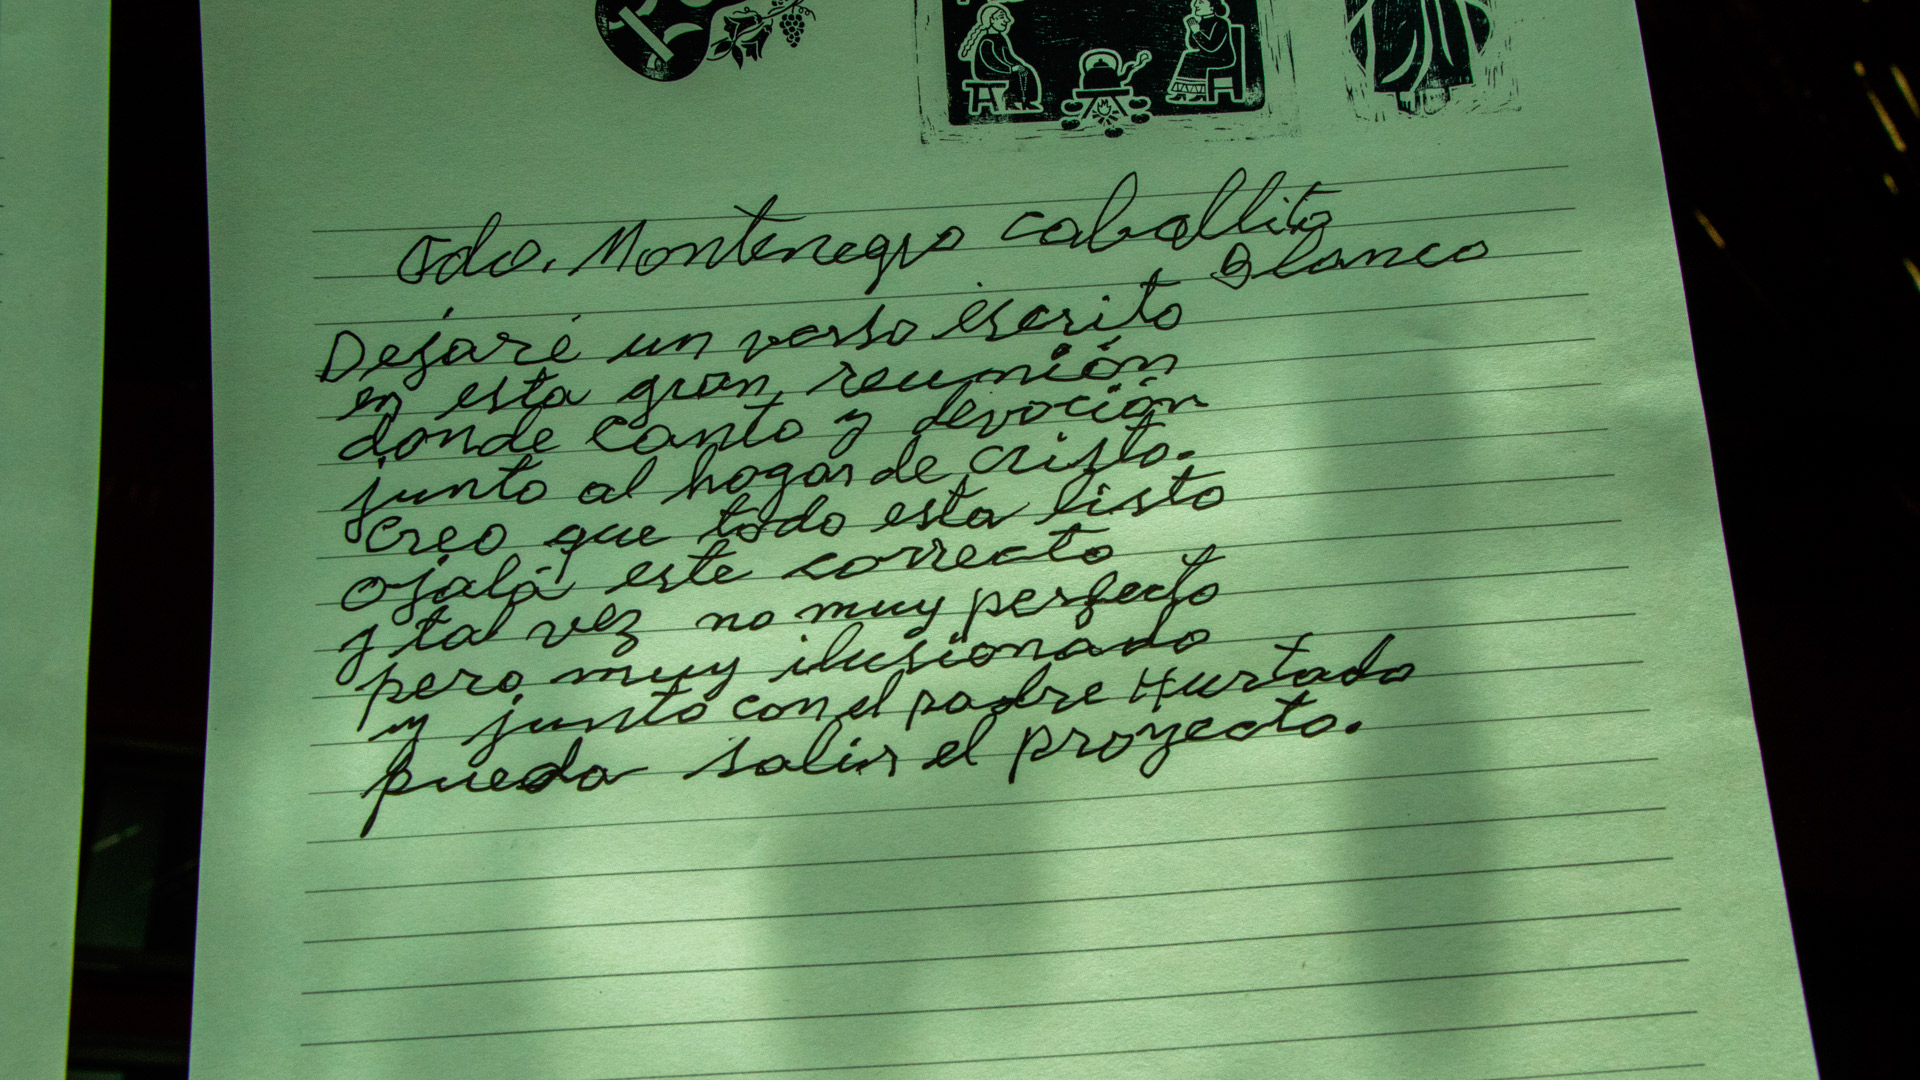 Fdo. Montenegro caballito
Blanco
Dejaré un verso escrito
en esta gran reunión
donde canto y devoción
junto al hogar de cristo.
Creo que todo esta listo
ojalá este correcto
y tal vez no muy perfecto
pero muy ilusionado
y junto con el padre Hurtado
pueda salir el proyecto.